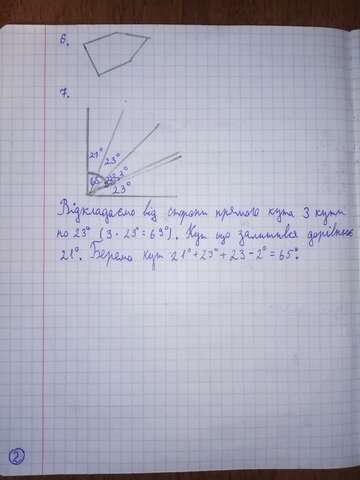 6.
7.
21°
23°
65°
23°
Відкладаємо від сторони прямого кута 3 кути
по 23° (3 · 23° = 69°). Кут що залишився дорівнює
21°. Беремо кут 21° + 23° + 23 - 2° = 65°.
2